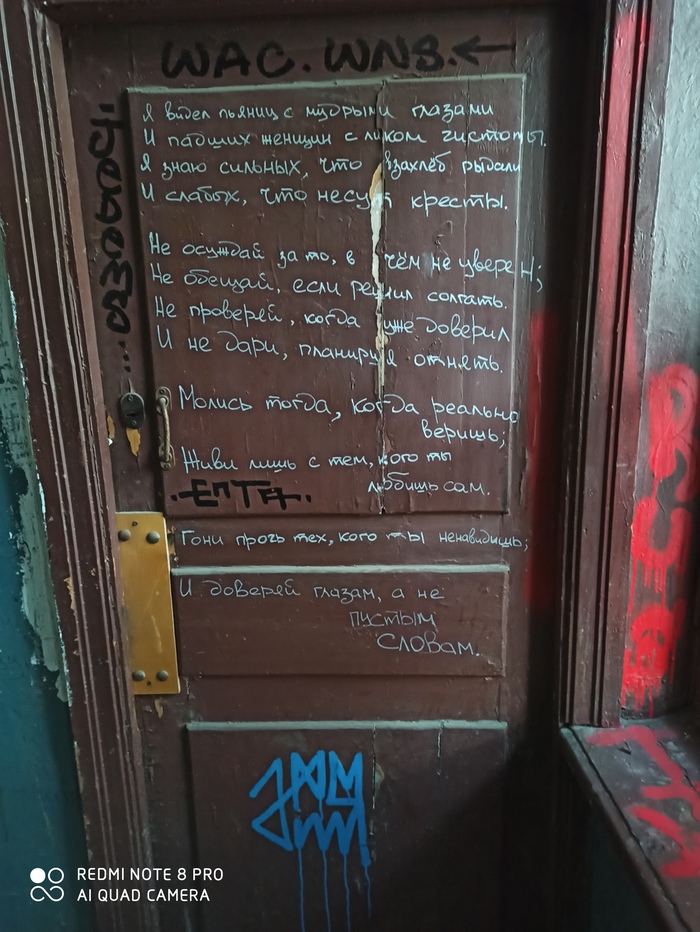 WAC. WNS.←
Я видел пьяниц с мудрыми глазами
И падших женщин с ликом чистоты.
Я знаю сильных, что взахлёб рыдали
И слабых, что несут кресты.
Не осуждай за то, в чём не уверен;
Не обещай, если решил солгать.
Не проверяй, когда уже доверил
И не дари, планируя отнять.
Молись тогда, когда реально
веришь;
Живи лишь с тем, кого ты
любишь сам.
Гони прочь тех, кого ты ненавидишь;
И доверяй глазам, а не
пустым
словам.
REDMI NOTE 8 PRO
AI QUAD CAMERA